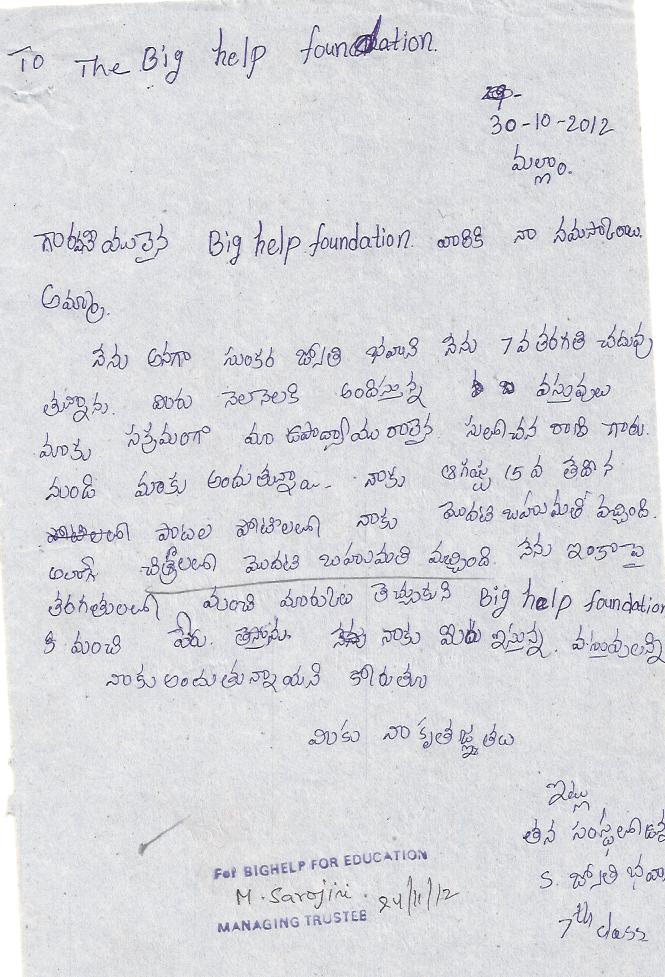 To The Big help foundation.
30-10-2012
మల్లాం.
గౌరవనీయులైన Big help foundation. వారికి నా నమస్కారాలు.
అమ్మా,
నేను అనగా సుంకర జ్యోతి భవాని నేను 7వ తరగతి చదువు
తున్నాను. మీరు నెలనెలకి అందిస్తున్న వస్తువులు
మాకు సక్రమంగా మా ఉపాధ్యాయు రాలైన సులోచన రాణి గారు.
నుండి మాకు అందుతున్నా... నాకు ఆగష్టు 15 వ తేదిన
పాటల పోటిలలో నాకు మొదటి బహుమతి వచ్చింది.
అలాగే చిత్రీలలో మొదటి బహుమతి వచ్చింది. నేను ఇంకా పై
తరగతులలో మంచి మారుకులు తెచ్చుకుని Big help foundation
కి మంచి పేరు. తెస్తాను. నాకు మీరు ఇస్తున్న. వస్తువులన్ని
నాకు అందుతున్నాయని కోరుతూ
మీకు నా కృతజ్ఞతలు
ఇట్లు
తన సంస్థలో ఉన్న
S. జ్యోతి భవా
7th class
For BIGHELP FOR EDUCATION
M. Sarojini. 24/11/12
MANAGING TRUSTEE